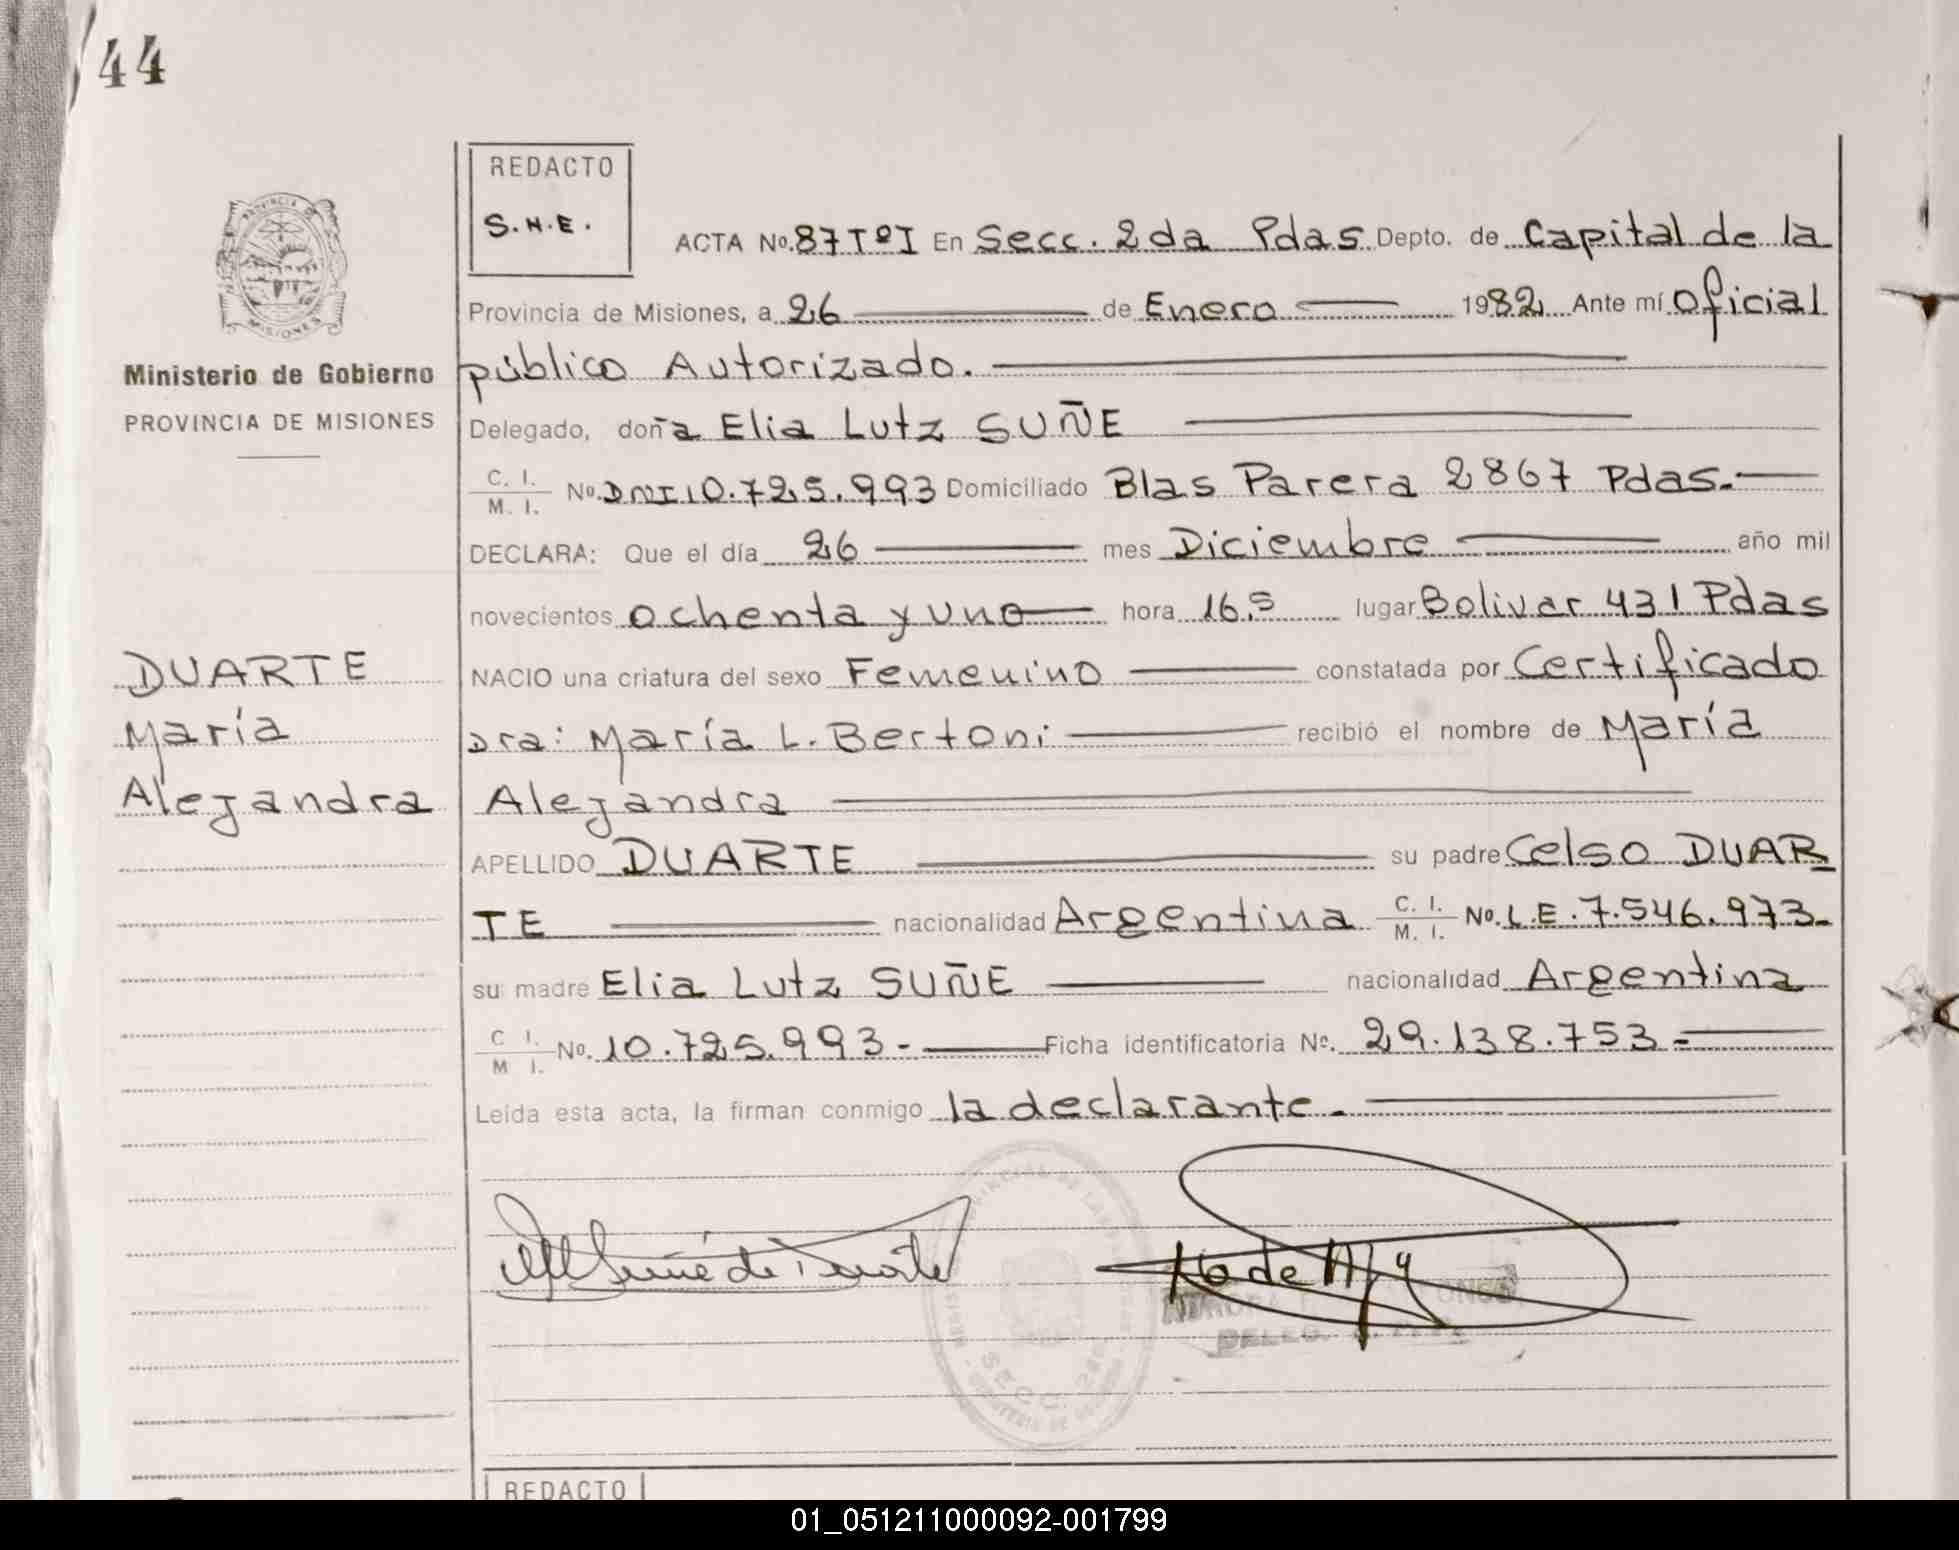 44
REDACTO
S.N.E.
ACTA No. 87 TºI En Secc. 2da Pdas Depto. de Capital de la
Provincia de Misiones, a 26 de Enero 1982 Ante mí oficial
Ministerio de Gobierno
PROVINCIA DE MISIONES
público Autorizado.
Delegado, doña Elia Lutz SUÑE
C. I. / M. I. No. DNI 10.725.993 Domiciliado Blas Parera 2867 Pdas.
DECLARA: Que el día 26 mes Diciembre año mil
novecientos ochenta y uno hora 16,5 lugar Bolivar 431 Pdas
DUARTE
María
Alejandra
NACIO una criatura del sexo Femenino constatada por Certificado
Dra: María L. Bertoni recibió el nombre de María
Alejandra
APELLIDO DUARTE su padre Celso DUAR
TE nacionalidad Argentina C. I. / M. I. No. L.E. 7.546.973-
su madre Elia Lutz SUÑE nacionalidad Argentina
C I. / M I. No. 10.725.993.- Ficha identificatoria No. 29.138.753=
Leída esta acta, la firman conmigo la declarante.
Suñé de Duarte
SECC. 2da
DELEG.
REDACTO
01_051211000092-001799